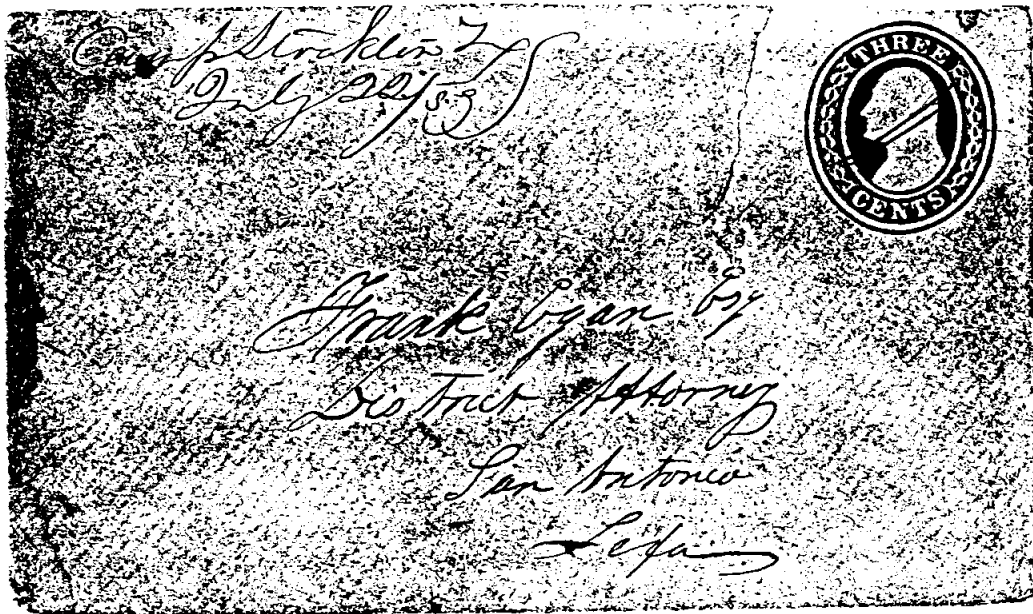 Camp
July 22
THREE
CENTS
Frank Egan Esq
District Attorney
San Antonio
Texas